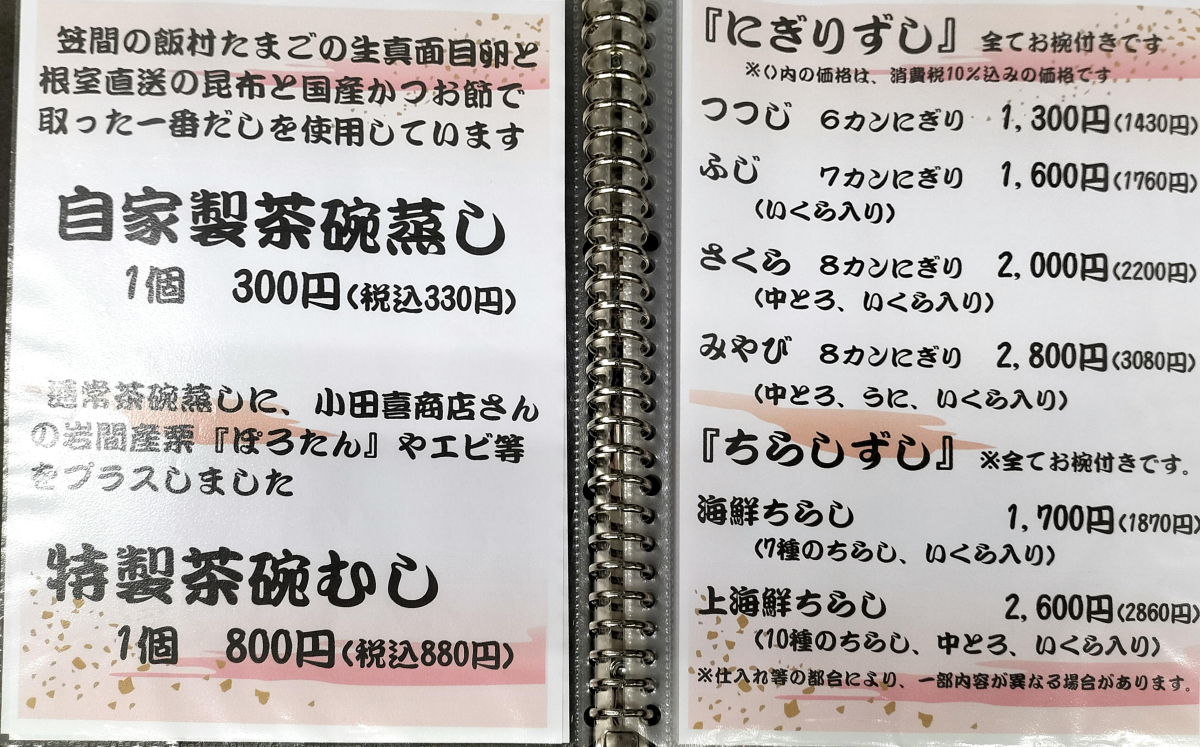 笠間の飯村たまごの生真面目卵と
根室直送の昆布と国産かつお節で
取った一番だしを使用しています
自家製茶碗蒸し
1個 300円(税込330円)
通常茶碗蒸しに、小田喜商店さん
の岩間産栗『ぽろたん』やエビ等
をプラスしました
特製茶碗むし
1個 800円(税込880円)
『にぎりずし』 全てお椀付きです
※()内の価格は、消費税10%込みの価格です
つつじ 6カンにぎり 1,300円(1430円)
ふじ 7カンにぎり 1,600円(1760円)
(いくら入り)
さくら 8カンにぎり 2,000円(2200円)
(中とろ、いくら入り)
みやび 8カンにぎり 2,800円(3080円)
(中とろ、うに、いくら入り)
『ちらしずし』 ※全てお椀付きです。
海鮮ちらし 1,700円(1870円)
(7種のちらし、いくら入り)
上海鮮ちらし 2,600円(2860円)
(10種のちらし、中とろ、いくら入り)
※仕入れ等の都合により、一部内容が異なる場合があります。